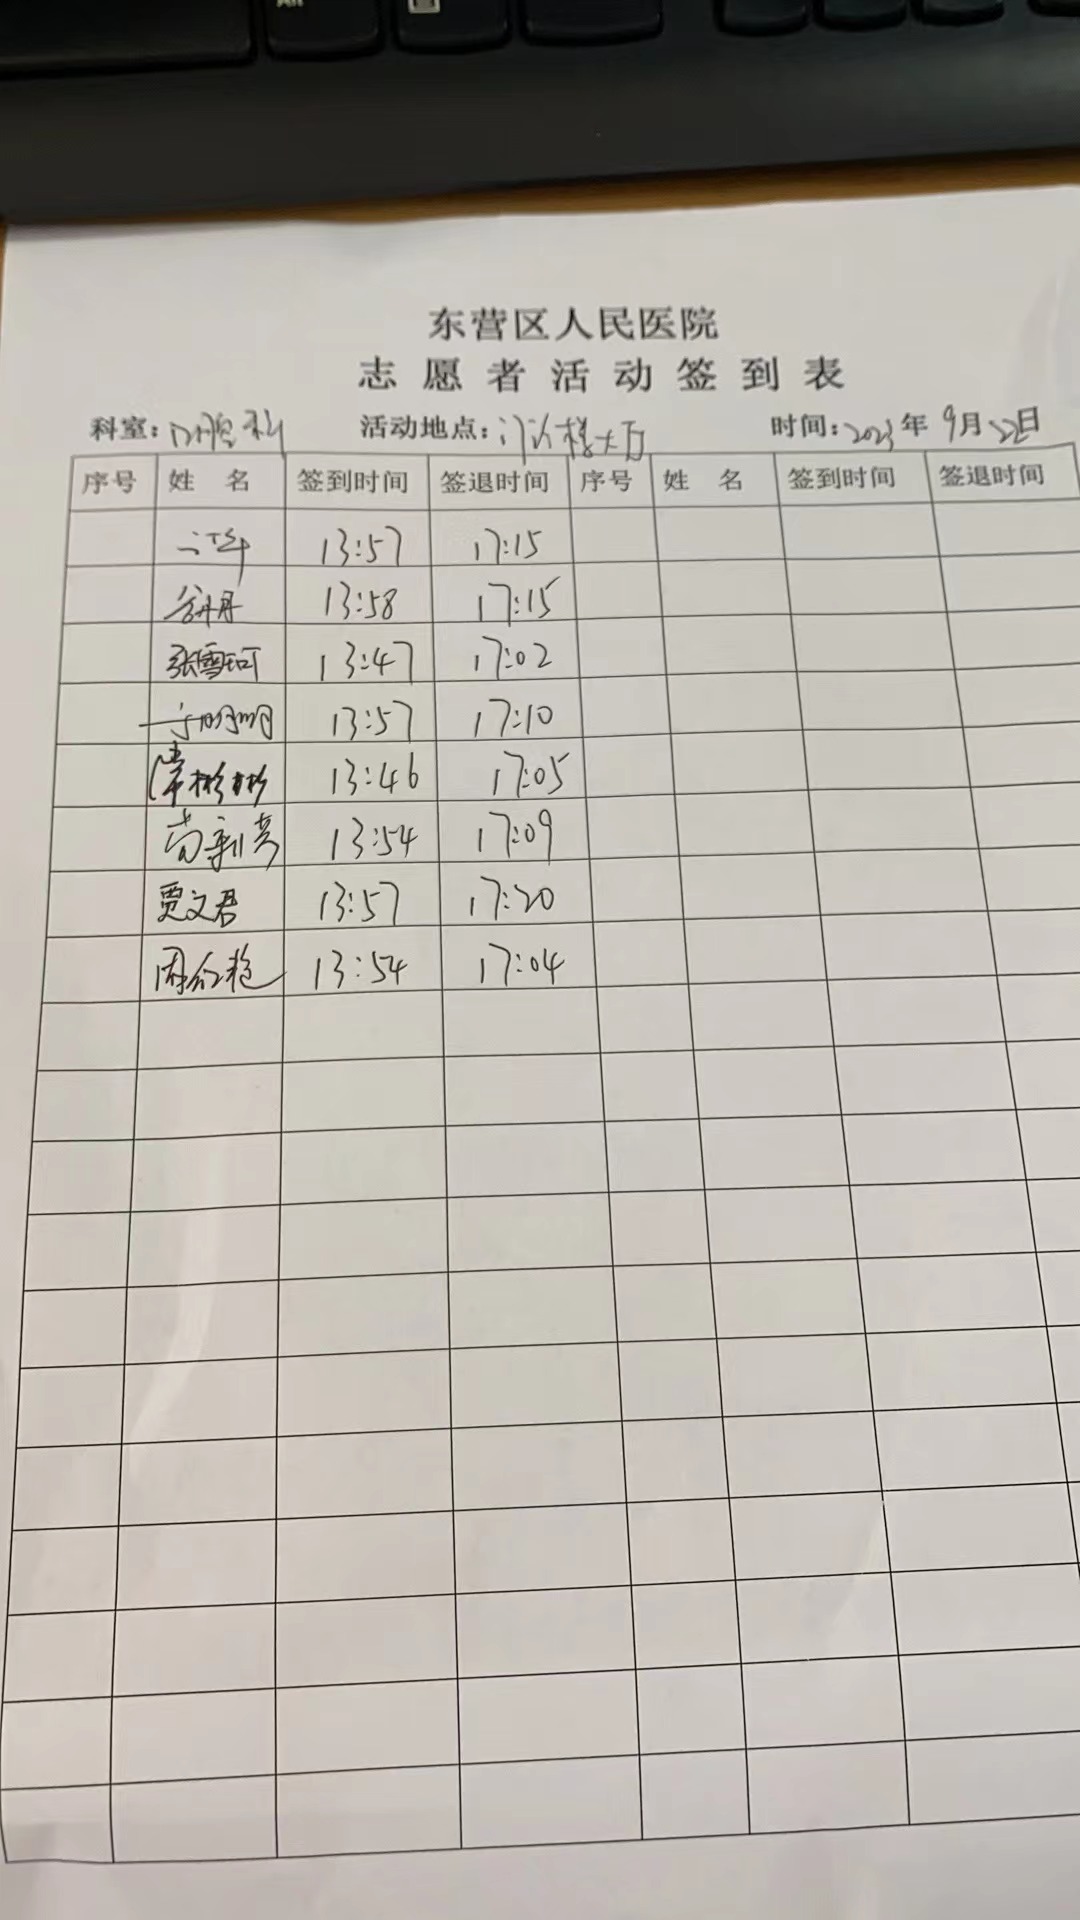 Alt
东营区人民医院
志愿者活动签到表
科室: 口腔科 活动地点: 门诊楼大厅 时间: 2023年9月22日
序号 姓名 签到时间 签退时间 序号 姓名 签到时间 签退时间
13:57 17:15
13:58 17:15
张雪珂 13:47 17:02
明明 13:57 17:10
常彬彬 13:46 17:05
13:54 17:09
贾文君 13:57 17:20
周红艳 13:54 17:04